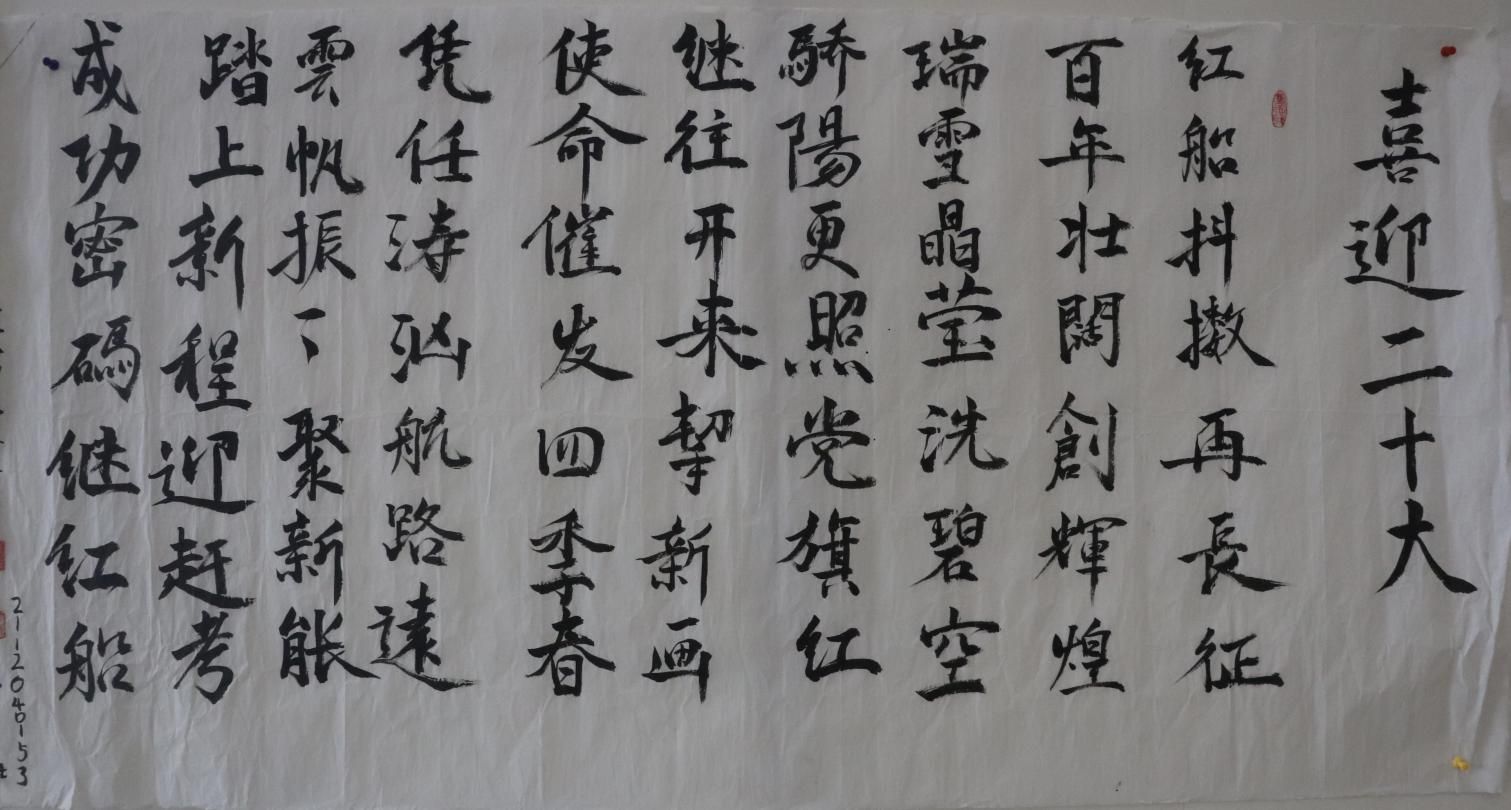 喜迎二十大
红船抖擞再長征
百年壮闊創輝煌
瑞雪晶莹洗碧空
驕陽更照党旗红
继往开来挈新画
使命催发四季春
凭任涛汹航路遠
雲帆振々聚新能
踏上新程迎赶考
成功密码继红船
2112040153